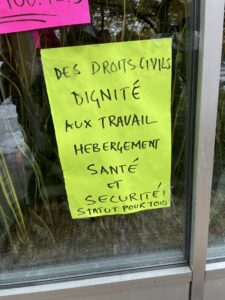 DES DROITS CIVILS
DIGNITÉ
AUX TRAVAIL
HEBERGEMENT
SANTÉ
ET
SECURITÉ!
STATUT POUR TOUS